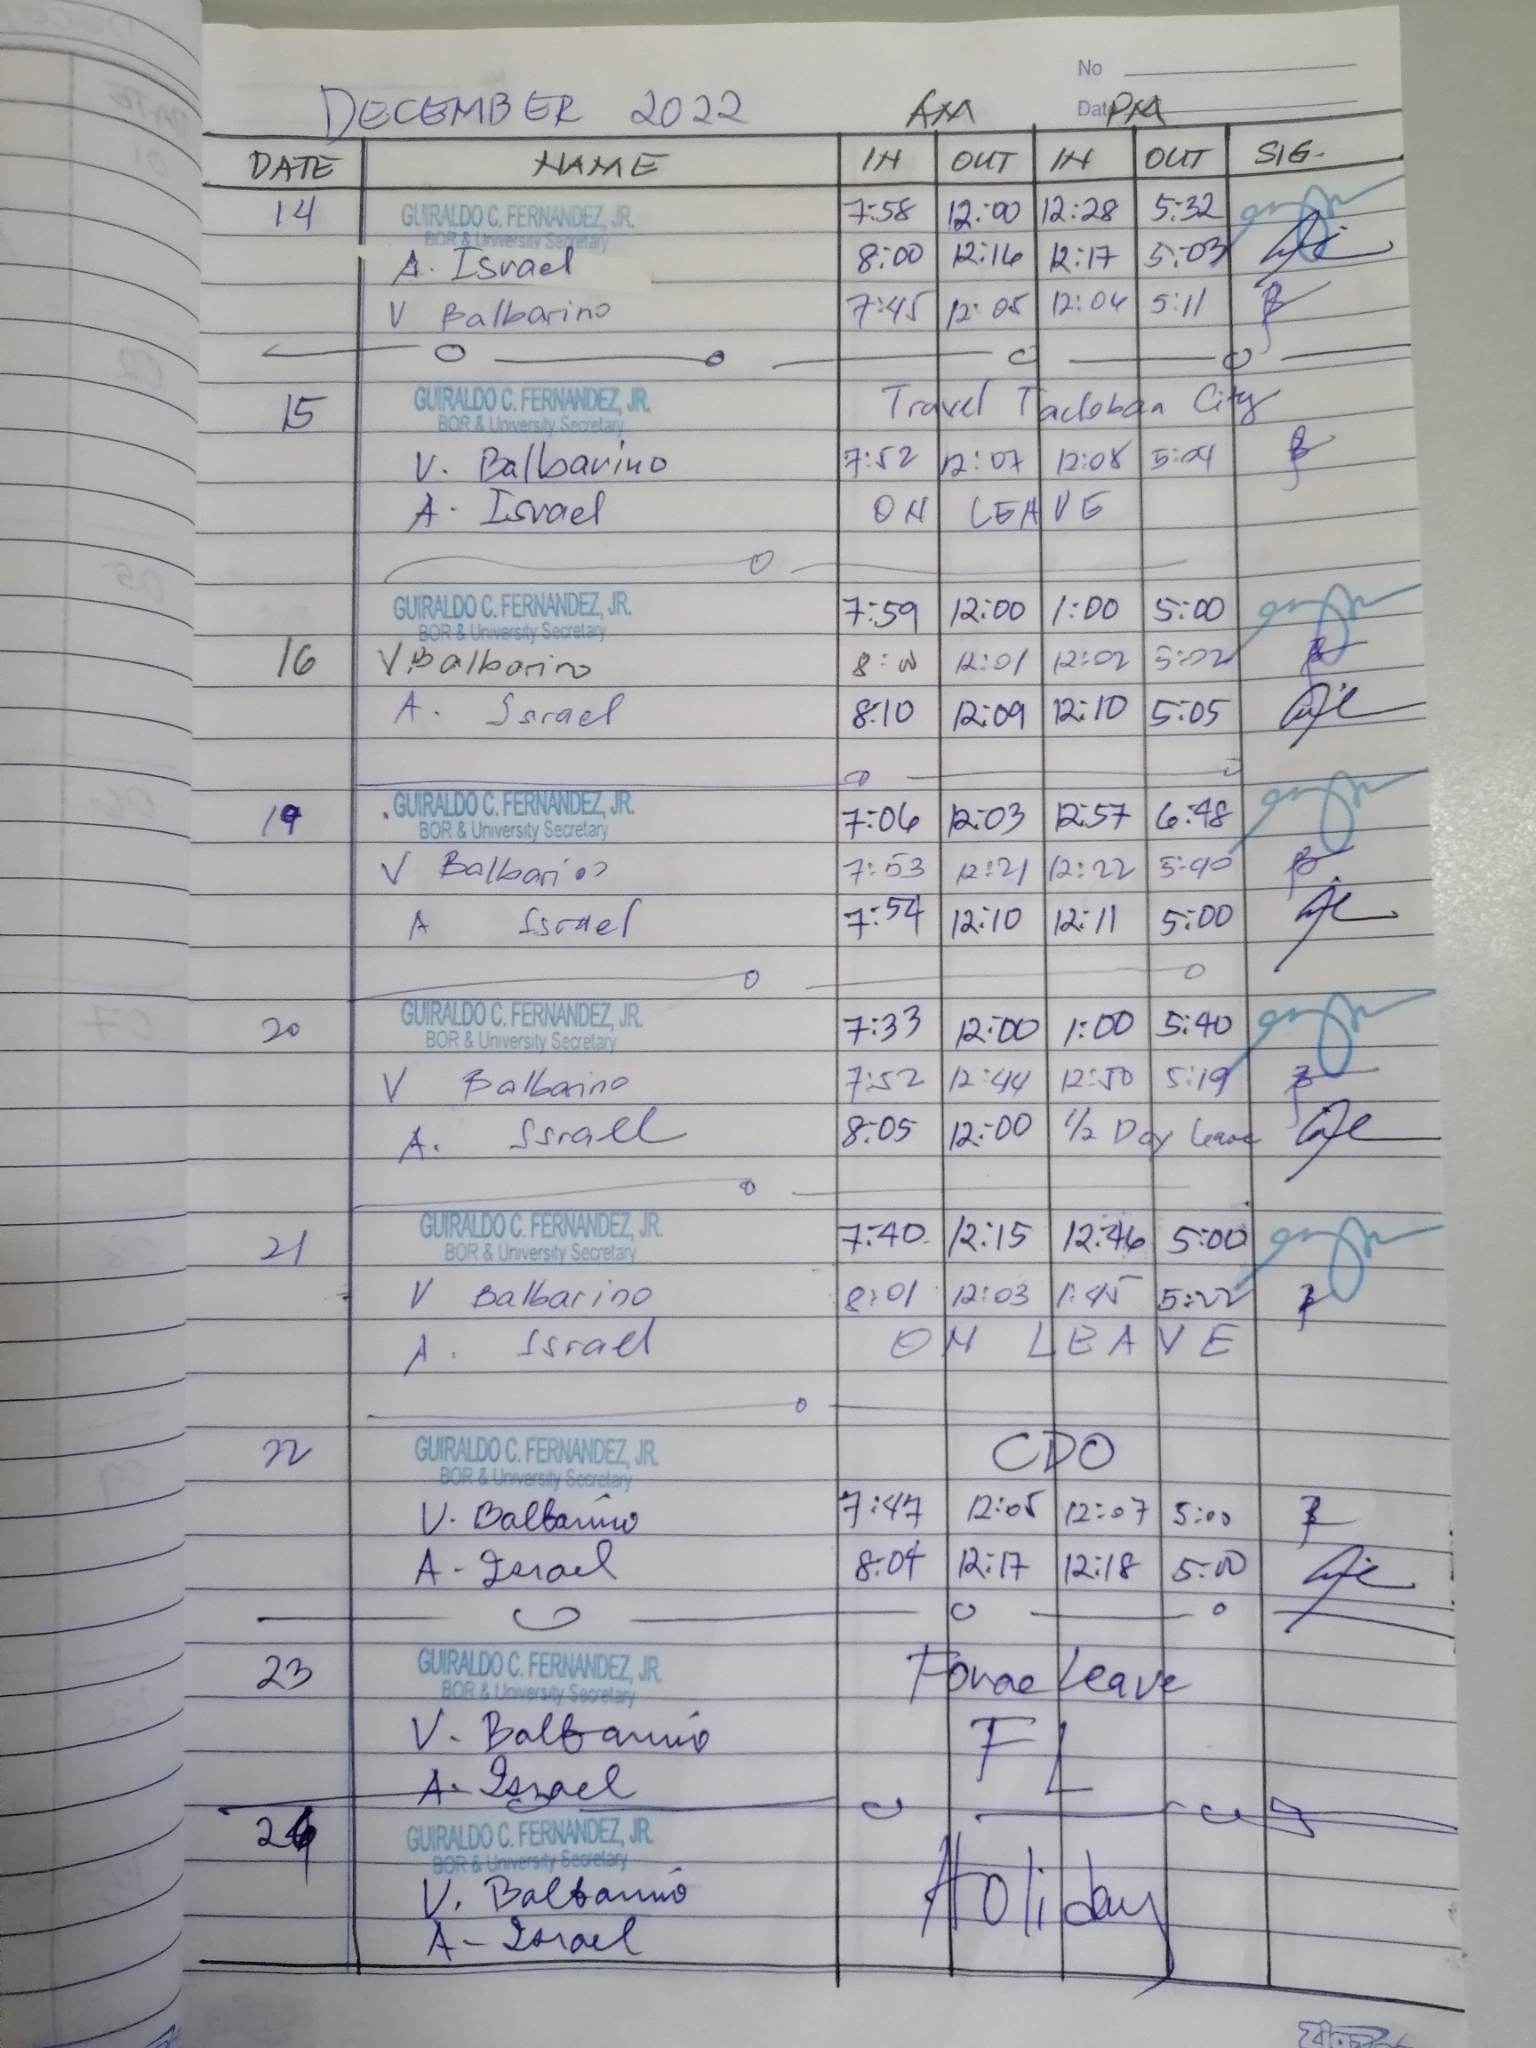 No
Date
DECEMBER 2022 AM PM
DATE NAME IN OUT IN OUT SIG.
14 GUIRALDO C. FERNANDEZ, JR. 7:58 12:00 12:28 5:32
BOR & University Secretary
A. Israel 8:00 12:16 12:17 5:03
V Balbarino 7:45 12:05 12:06 5:11
15 GUIRALDO C. FERNANDEZ, JR. Travel Tacloban City
BOR & University Secretary
V. Balbarino 7:52 12:07 12:08 5:04
A. Israel ON LEAVE
GUIRALDO C. FERNANDEZ, JR. 7:59 12:00 1:00 5:00
BOR & University Secretary
16 V.Balbarino 8:00 12:01 12:02 5:02
A. Israel 8:10 12:09 12:10 5:05
19 GUIRALDO C. FERNANDEZ, JR. 7:06 12:03 12:57 6:48
BOR & University Secretary
V Balbarino 7:53 12:21 12:22 5:40
A Israel 7:54 12:10 12:11 5:00
20 GUIRALDO C. FERNANDEZ, JR. 7:33 12:00 1:00 5:40
BOR & University Secretary
V Balbarino 7:52 12:44 12:50 5:19
A. Israel 8:05 12:00 1/2 Day leave
21 GUIRALDO C. FERNANDEZ, JR. 7:40 12:15 12:46 5:00
BOR & University Secretary
V Balbarino 8:01 12:03 1:45 5:22
A. Israel ON LEAVE
22 GUIRALDO C. FERNANDEZ, JR. CDO
BOR & University Secretary
V. Balbarino 7:47 12:05 12:07 5:00
A - Israel 8:04 12:17 12:18 5:00
23 GUIRALDO C. FERNANDEZ, JR. Forae Leave
BOR & University Secretary
V. Balbarino FL
A. Israel
26 GUIRALDO C. FERNANDEZ, JR. Holiday
BOR & University Secretary
V. Balbarino
A - Israel